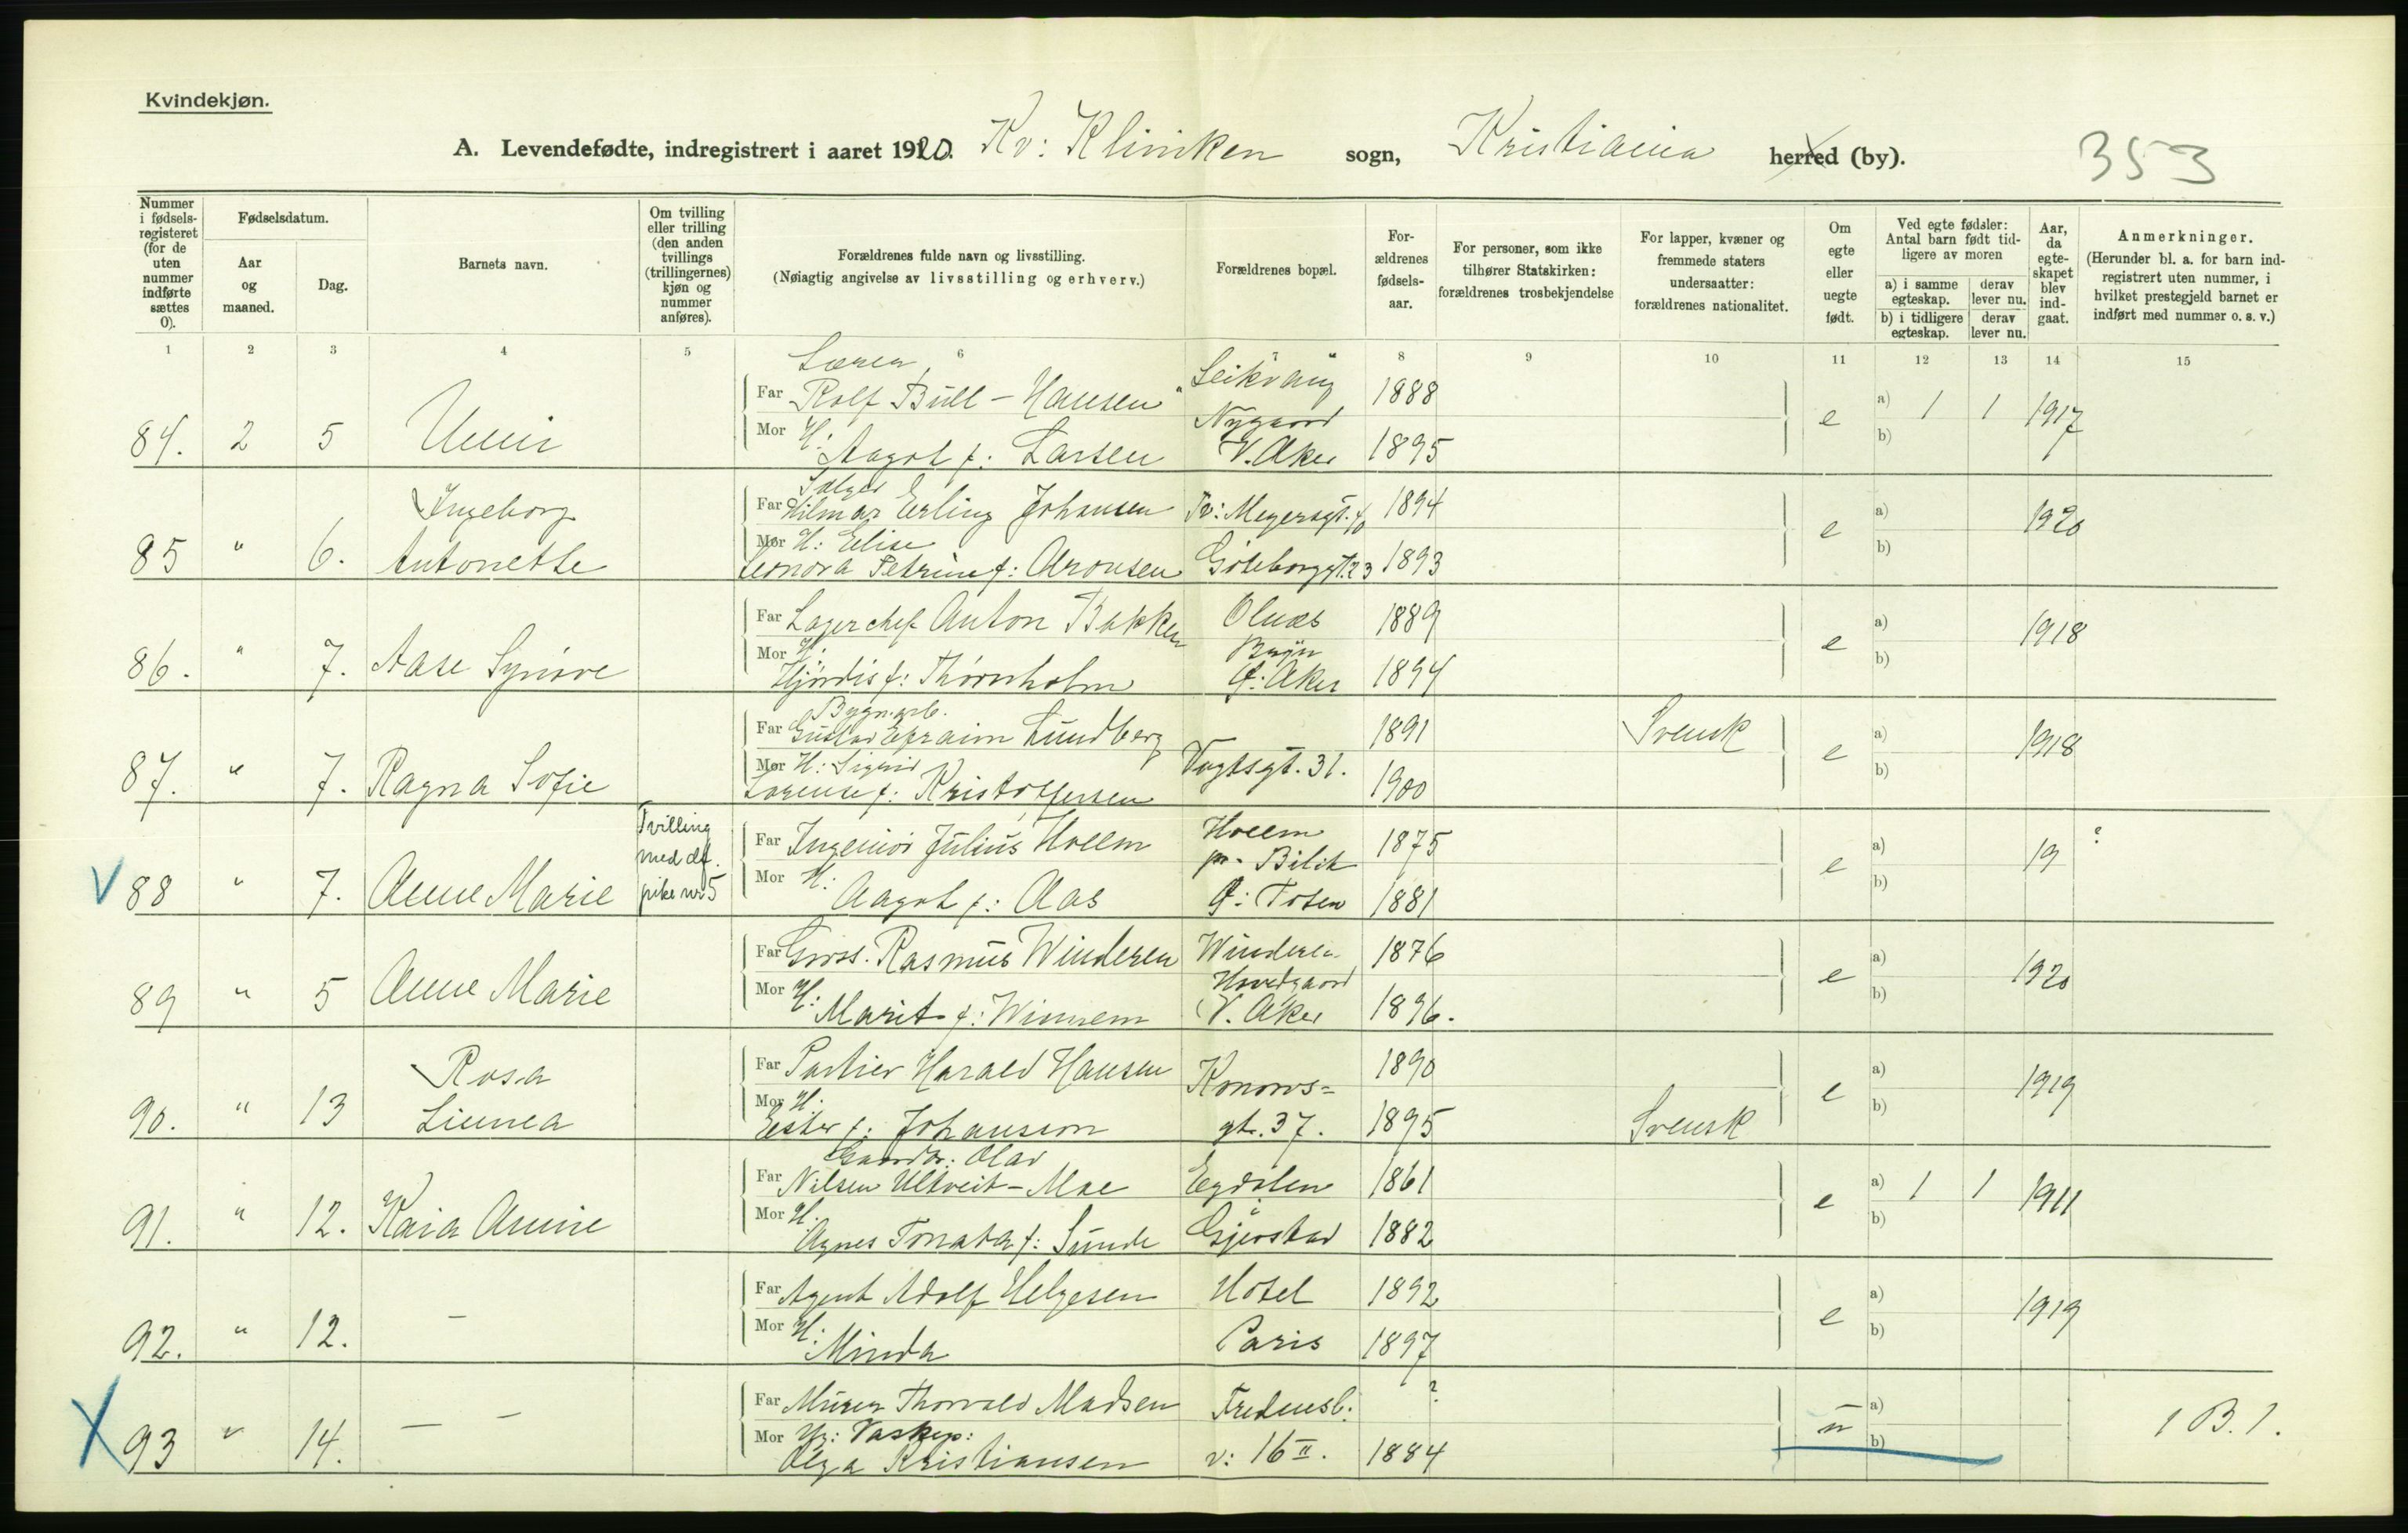 Kvindekjøn.
A. Levendefødte, indregistrert i aaret 1920. Kv: Kliniken sogn, Kristiania herred (by).
353
Nummer i fødsels-registeret (for de uten nummer indførte sættes 0).
Fødselsdatum.
Aar og maaned.
Dag.
Barnets navn.
Om tvilling eller trilling (den anden tvillings (trillingernes) kjøn og nummer anføres).
Forældrenes fulde navn og livsstilling.
(Nøiagtig angivelse av livsstilling og erhverv.)
Forældrenes bopæl.
For-ældrenes fødsels-aar.
For personer, som ikke tilhører Statskirken: forældrenes trosbekjendelse
For lapper, kvæner og fremmede staters undersaatter: forældrenes nationalitet.
Om egte eller uegte født.
Ved egte fødsler: Antal barn født tid-ligere av moren
a) i samme egteskap. derav lever nu.
b) i tidligere egteskap. derav lever nu.
Aar, da egte-skapet blev ind-gaat.
Anmerkninger.
(Herunder bl. a. for barn ind-registrert uten nummer, i hvilket prestegjeld barnet er indført med nummer o. s. v.)
1 2 3 4 5 6 8 9 10 11 12 13 14 15
84. 2 5 Unni
Far Lærer Rolf Bull-Hansen Leikvang 1888
Mor H: Aagot f: Larsen Nygaard V. Aker 1895
e a) 1 1 1917
b)
85 " 6. Ingeborg Antonette
Far Sælger Hilmar Erling Johansen Tv: Meyersgt. 1894
Mor H: Elise Leonora Petrine f: Aronsen Göteborggt. 23 1893
e a) 1920
b)
86. " 7. Aase Synöve
Far Lagerchef Anton Bakken 1889
Mor H: Hjördis f: Thörnholm Ö: Aker 1894
e a) 1918
b)
87. " 7. Ragna Sofie
Far Bygn.arb. Gustav Efraim Lundberg 1891 Svensk
Mor H: Sigrid Lorense f: Kristoffersen Vogtsgt. 31. 1900
e a) 1918
b)
V 88 " 7. Anne Marie Tvilling med df. pike nr 5
Far Ingeniör Julius Hoelm Hoelm pr. Bilit 1875
Mor H: Aagot f: Aas Ö: Toten 1881
e a) 19 ?
b)
89 " 5 Anne Marie
Far Gross. Rasmus Winderen Winderen 1876
Mor H: Marit f: Winnem Hovedgaard V. Aker 1896.
e a) 1920
b)
90. " 13 Rosa Linnea
Far Portier Harald Hansen Konows= 1890
Mor H: Ester f: Johansson gt. 37. 1895 Svensk
e a) 1919
b)
91. " 12. Kaia Annie
Far Gaardbr: Olav Nilsen Ultveit-Moe Egdalen 1861
Mor H: Agnes Tonata f: Sunde Gjerstad 1882
e a) 1 1 1911
b)
92. " 12. —
Far Agent Adolf Helgesen Hotel 1892
Mor H: Minda Paris 1897
e a) 1919
b)
X 93 " 14. — —
Far Murer Thorvald Madsen Fredensb: ?
Mor Ug: Vaskep: Olga Kristiansen v: 16 II. 1884
u a) 1 B. 1.
b)